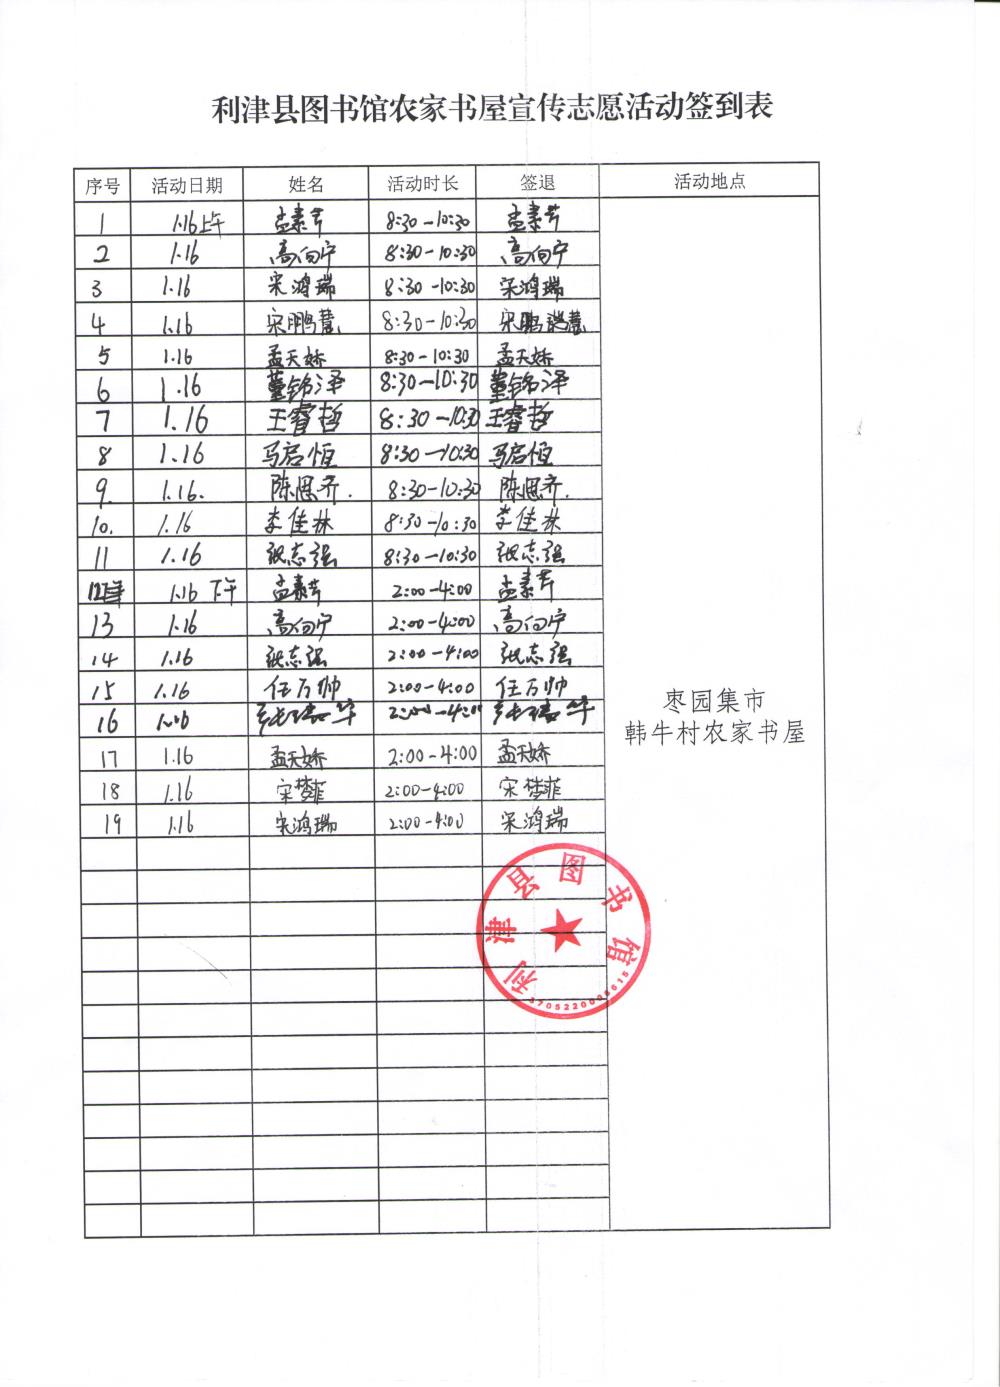 利津县图书馆农家书屋宣传志愿活动签到表
序号 活动日期 姓名 活动时长 签退 活动地点
1 1.16上午 孟素芹 8:30-10:30 孟素芹
2 1.16 高向宁 8:30-10:30 高向宁
3 1.16 宋鸿瑞 8:30-10:30 宋鸿瑞
4 1.16 宋鹏慧 8:30-10:30 宋鹏慧
5 1.16 孟天娇 8:30-10:30 孟天娇
6 1.16 董锦泽 8:30-10:30 董锦泽
7 1.16 王睿哲 8:30-10:30 王睿哲
8 1.16 马启恒 8:30-10:30 马启恒
9. 1.16. 陈思齐. 8:30-10:30 陈思齐.
10. 1.16 李佳林 8:30-10:30 李佳林
11 1.16 张志强 8:30-10:30 张志强
12 1.16 下午 孟素芹 2:00-4:00 孟素芹
13 1.16 高向宁 2:00-4:00 高向宁
14 1.16 张志强 2:00-4:00 张志强
15 1.16 任万帅 2:00-4:00 任万帅
16 1.16 2:00-4:00
17 1.16 孟天娇 2:00-4:00 孟天娇
18 1.16 宋梦菲 2:00-4:00 宋梦菲
19 1.16 宋鸿瑞 2:00-4:00 宋鸿瑞
枣园集市
韩牛村农家书屋
利津县图书馆